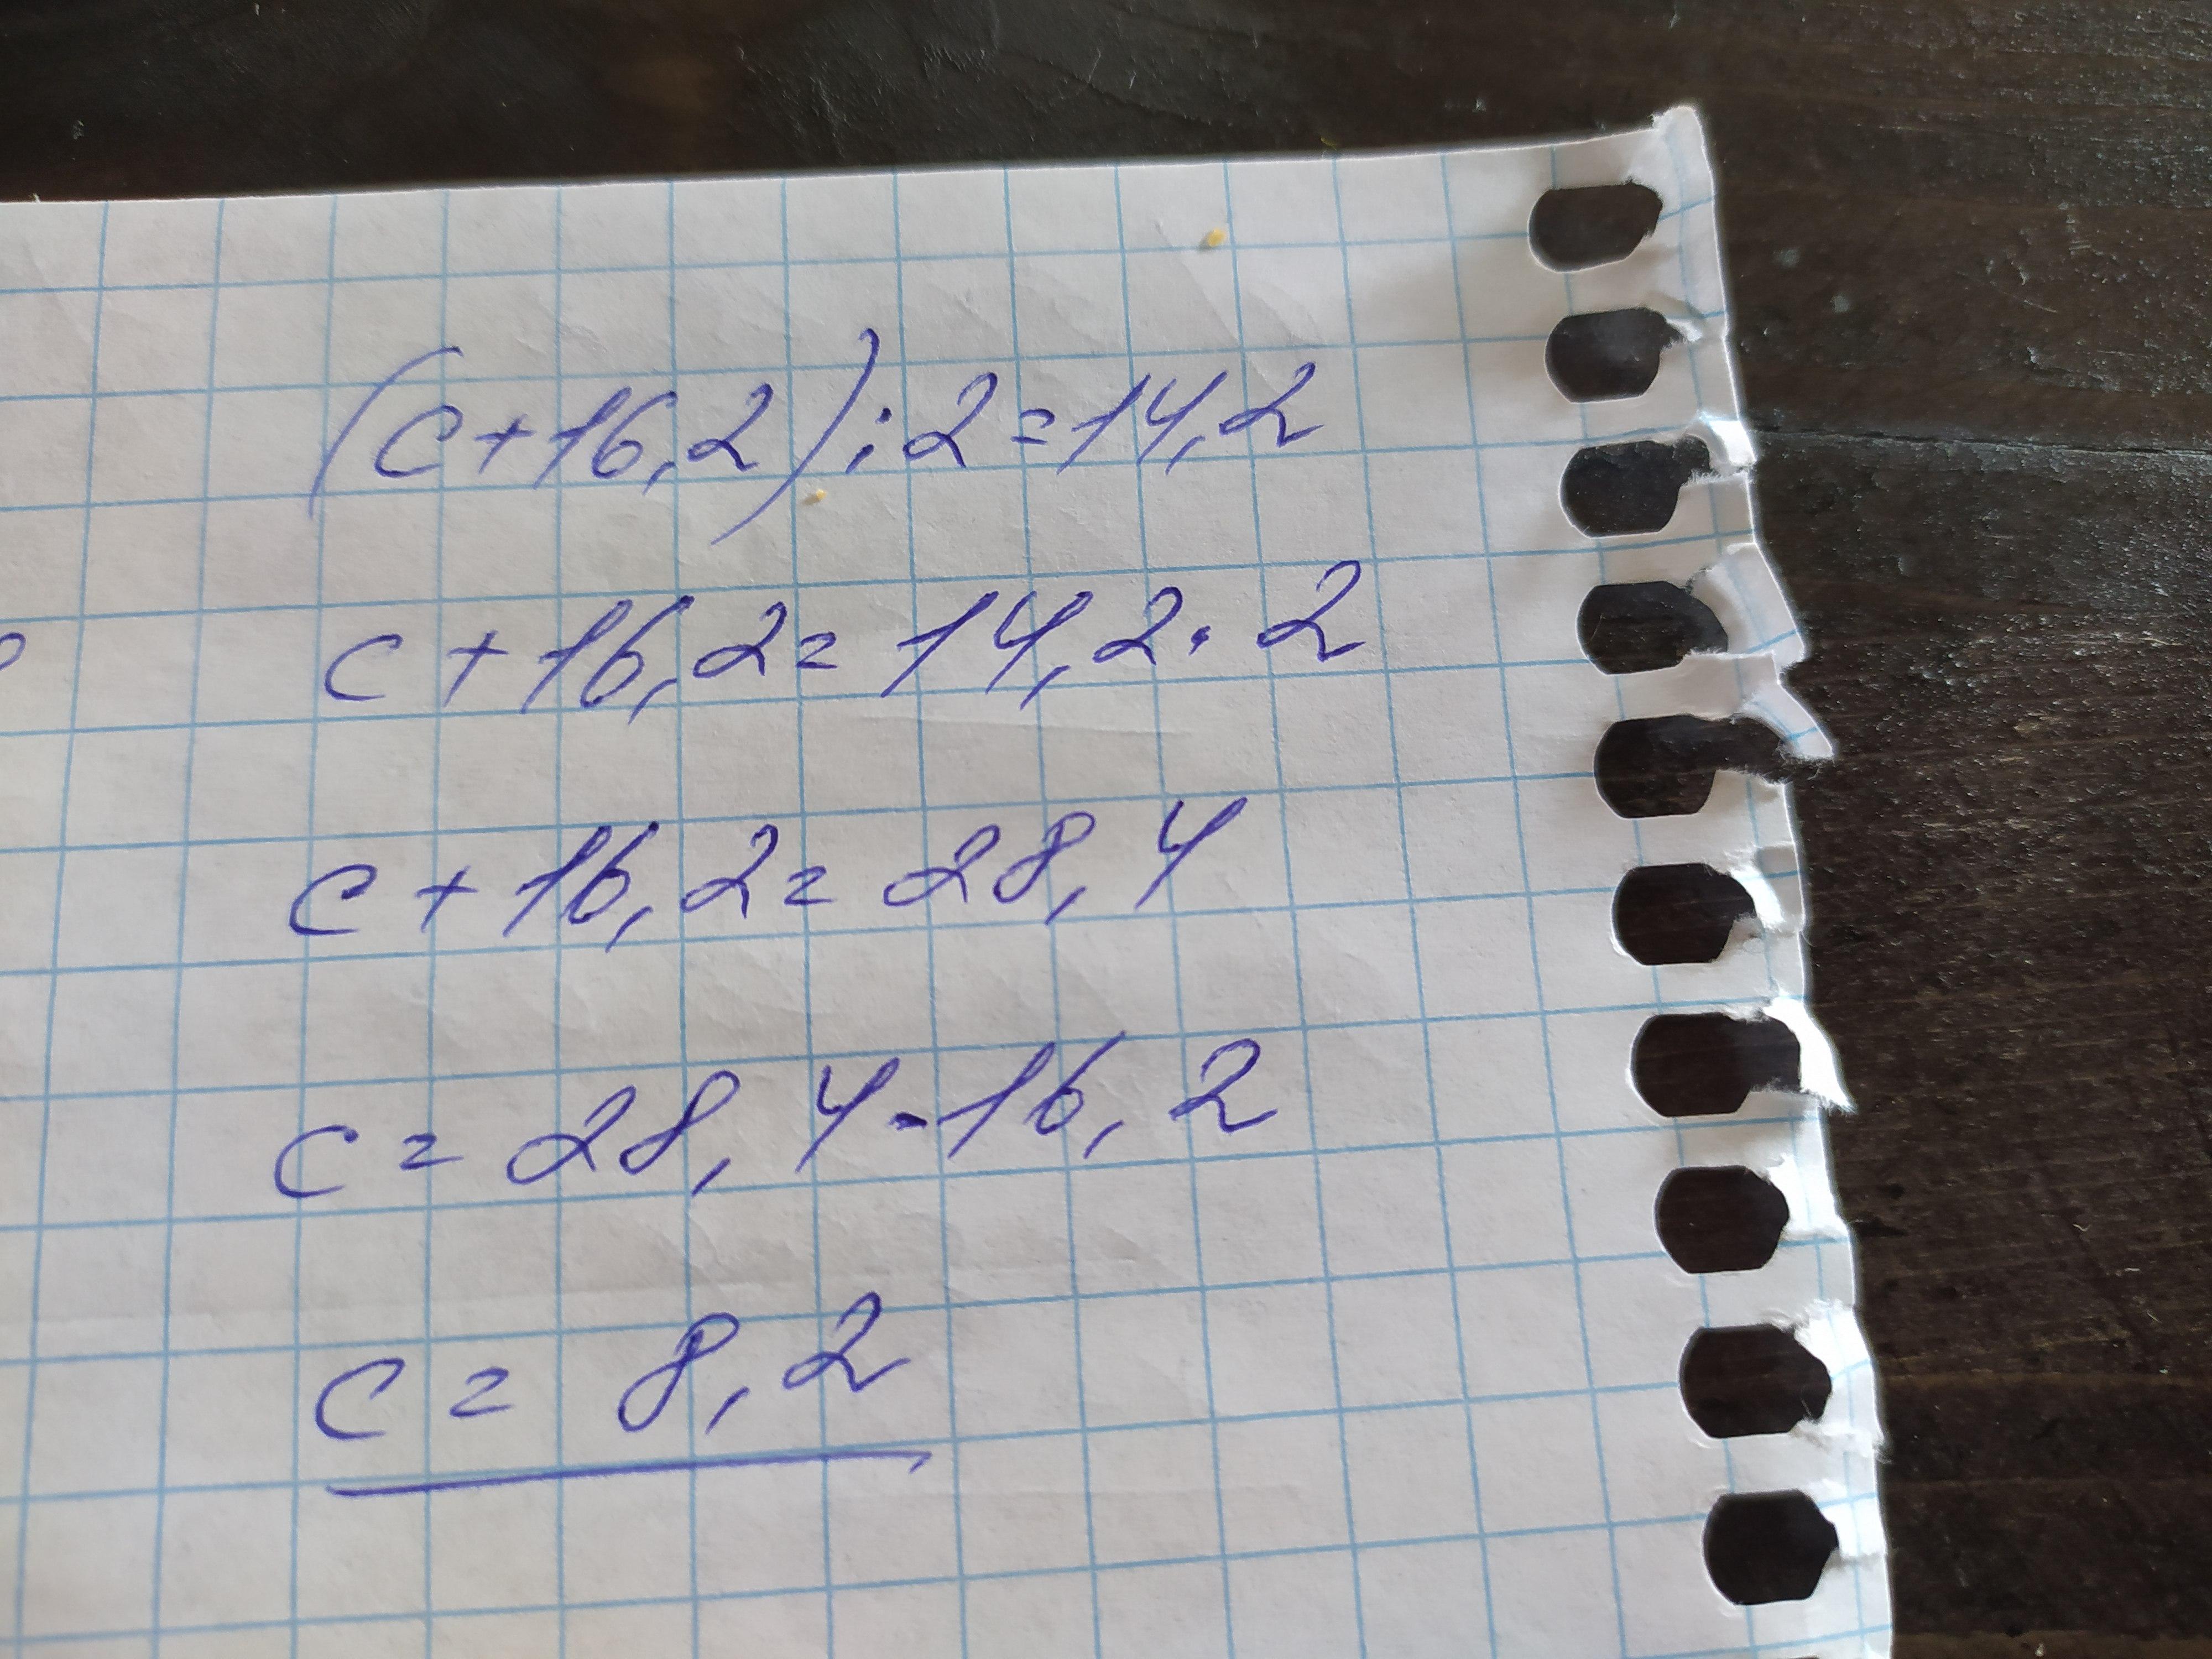 (c+16,2):2=14,2
c+16,2=14,2·2
c+16,2=28,4
c=28,4-16,2
c=8,2